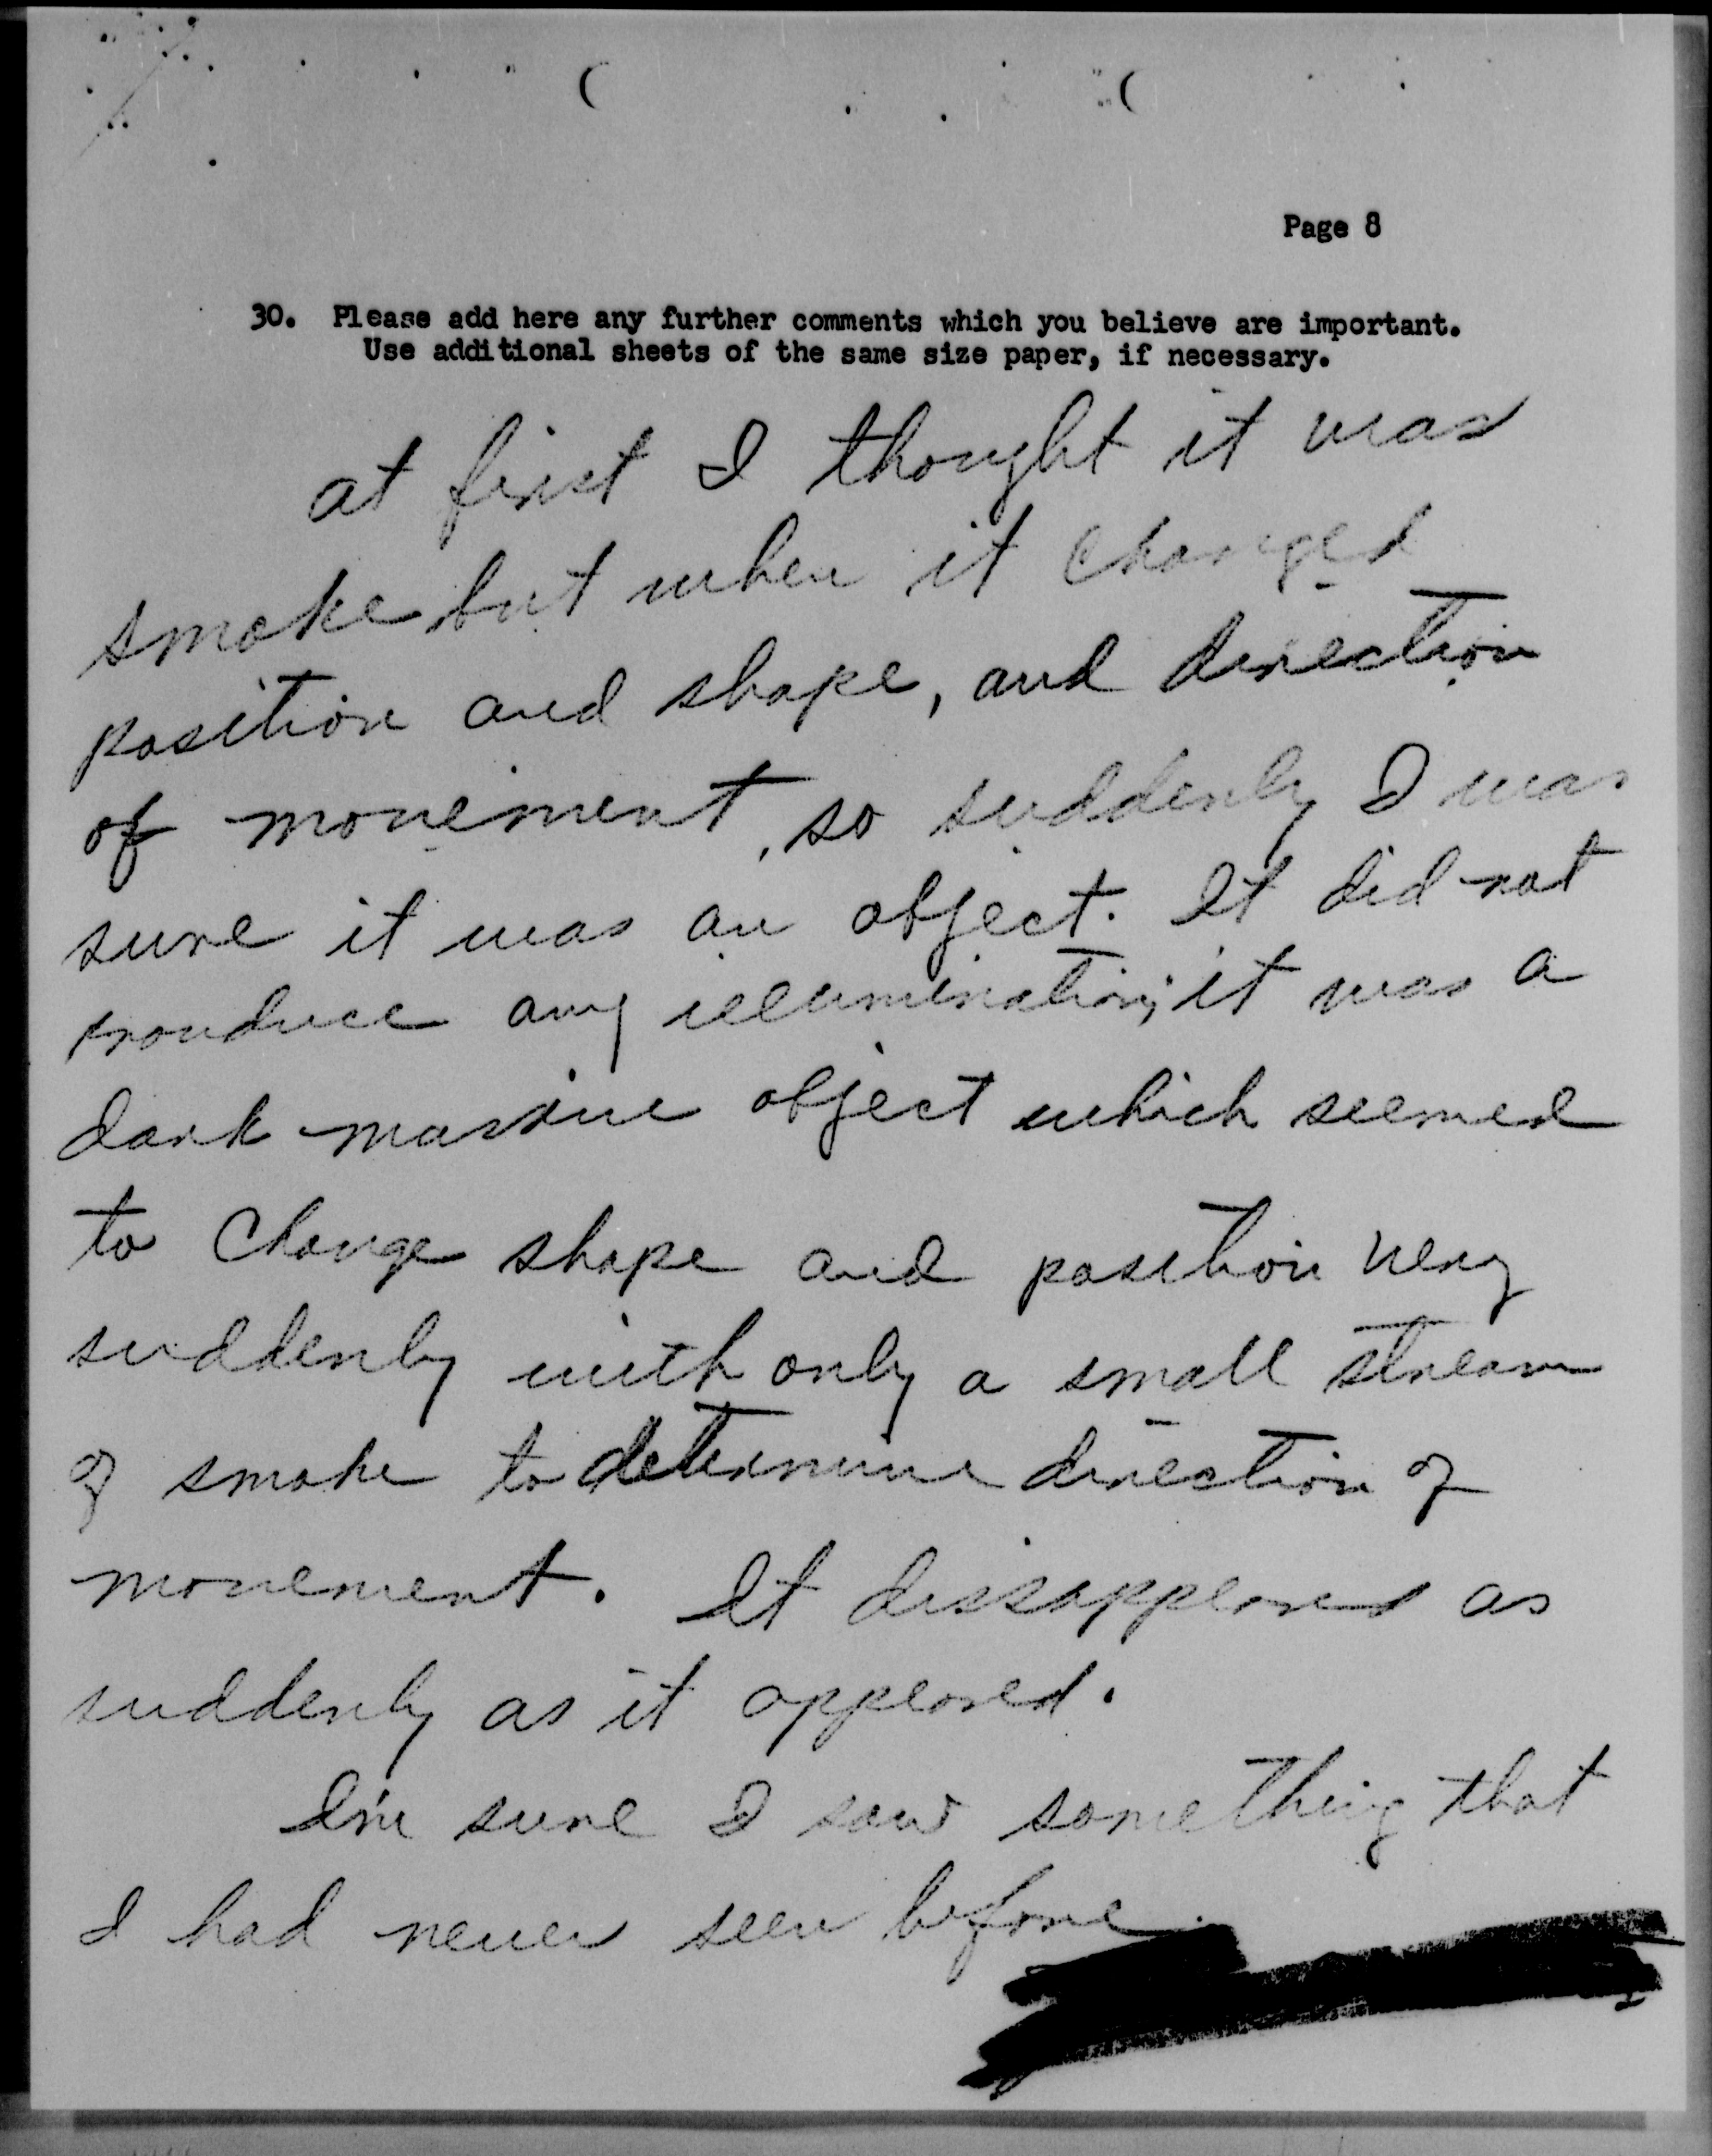 Page 8
30. Please add here any further comments which you believe are important.
Use additional sheets of the same size paper, if necessary.
at first I thought it was
smoke but when it changed
position and shape, and direction
of movement, so suddenly I was
sure it was an object. It did not
prouduce any illumination; it was a
dark massive object which seemed
to change shape and position very
suddenly with only a small stream
of smoke to determine direction of
movement. It dissappeared as
suddenly as it appeared.
I'm sure I saw something that
I had never seen before.